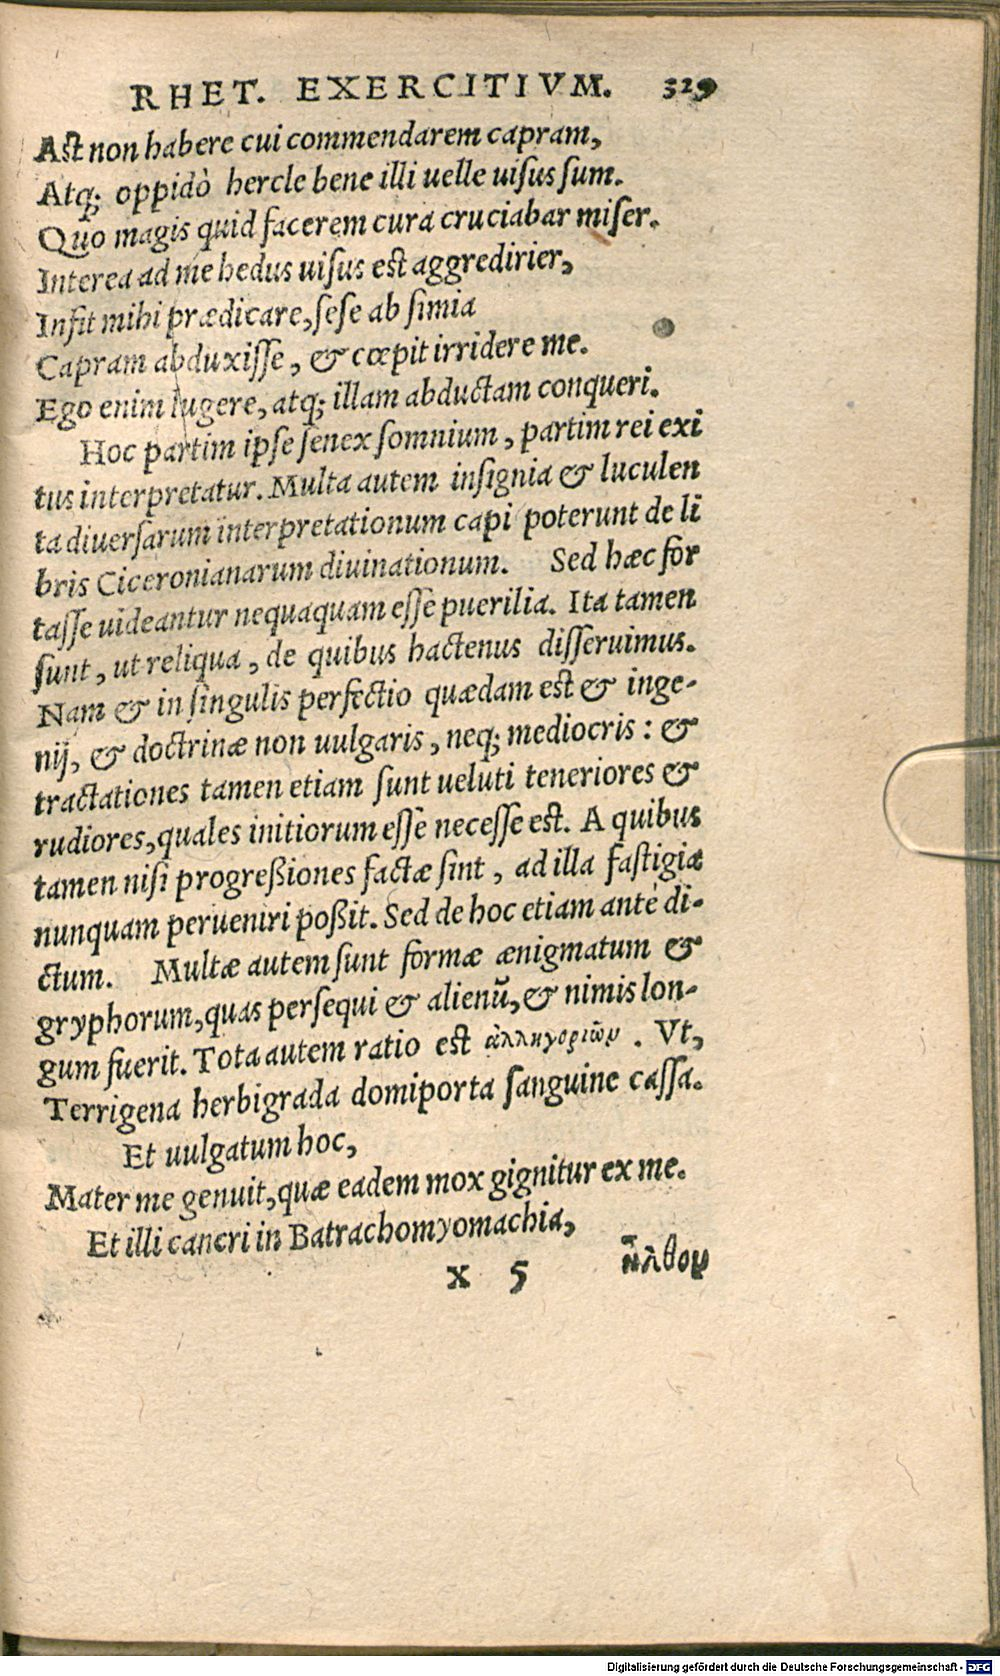 RHET. EXERCITIVM. 329
Ast non habere cui commendarem capram,
Atq; oppidò hercle bene illi uelle uisus sum.
Quo magis quid facerem cura cruciabar miser.
Interea ad me hedus uisus est aggredirier,
Infit mihi prædicare, sese ab simia
Capram abduxisse, & cœpit irridere me.
Ego enim lugere, atq; illam abductam conqueri.
Hoc partim ipse senex somnium, partim rei exi
tus interpretatur. Multa autem insignia & luculen
ta diuersarum interpretationum capi poterunt de li
bris Ciceronianarum diuinationum. Sed hæc for
tasse uideantur nequaquam esse puerilia. Ita tamen
sunt, ut reliqua, de quibus hactenus disseruimus.
Nam & in singulis perfectio quædam est & inge-
nij, & doctrinæ non uulgaris, neq; mediocris: &
tractationes tamen etiam sunt ueluti teneriores &
rudiores, quales initiorum esse necesse est. A quibus
tamen nisi progreßiones factæ sint, ad illa fastigia
nunquam perueniri poßit. Sed de hoc etiam antè di-
ctum. Multæ autem sunt formæ ænigmatum &
gryphorum, quas persequi & alienũ, & nimis lon-
gum fuerit. Tota autem ratio est ἀλληγοριῶν. Vt,
Terrigena herbigrada domiporta sanguine cassa.
Et uulgatum hoc,
Mater me genuit, quæ eadem mox gignitur ex me.
Et illi cancri in Batrachomyomachia,
X 5 ἦλθον
Digitalisierung gefördert durch die Deutsche Forschungsgemeinschaft - DFG